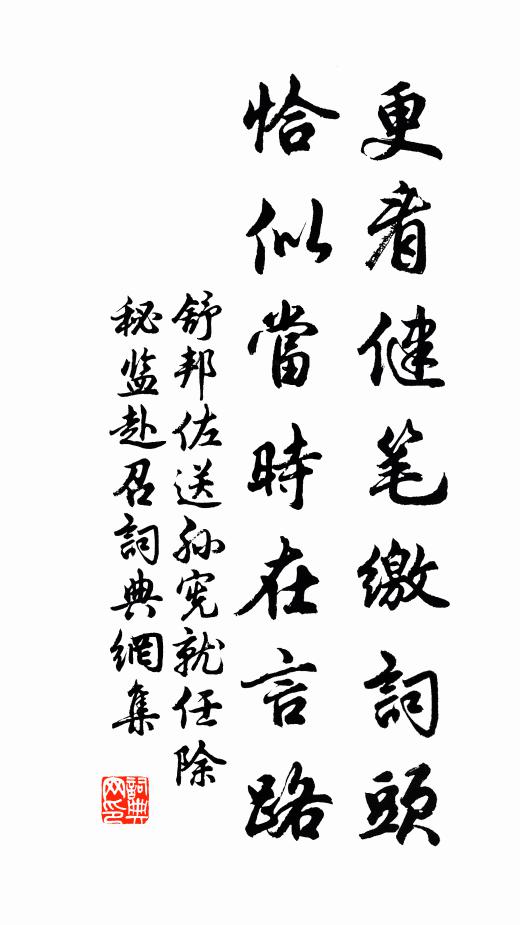 更看健笔繳詞頭
恰似當時在言路
舒邦佐送孙宪就任除
秘监赴召詞典網集
詞典網印